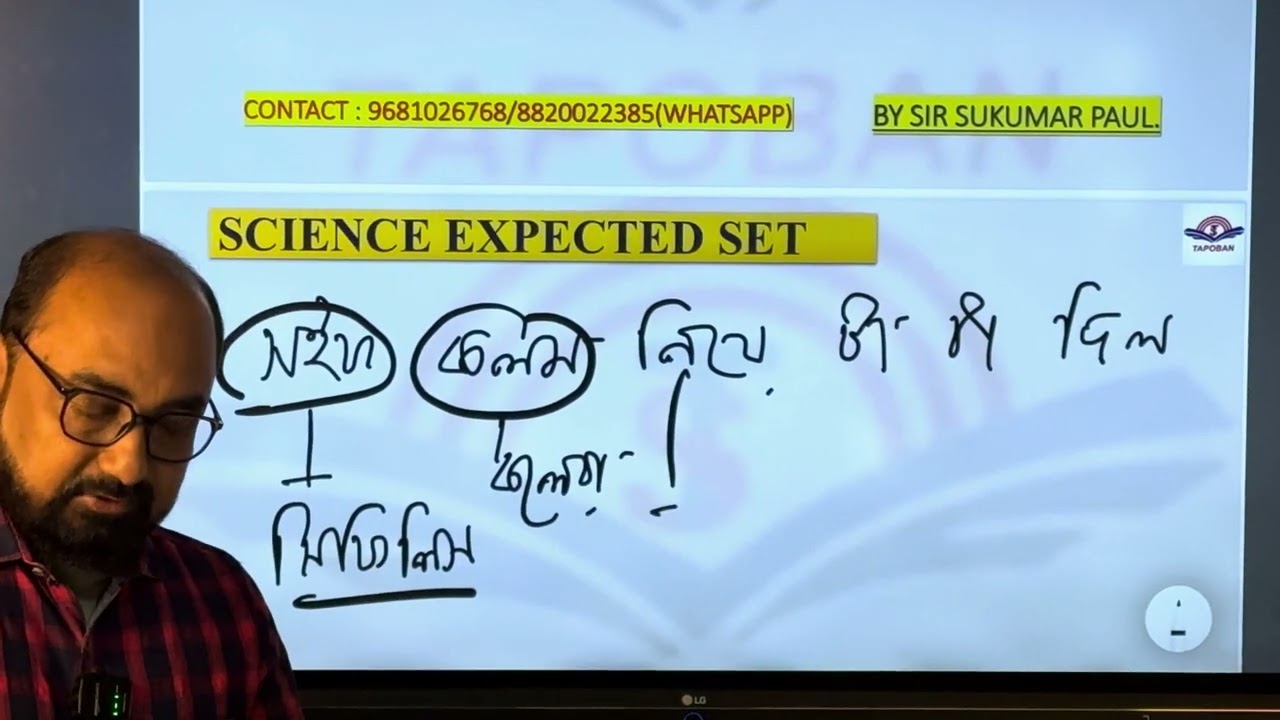 CONTACT : 9681026768/8820022385(WHATSAPP) BY SIR SUKUMAR PAUL.
TAPOBAN
SCIENCE EXPECTED SET
TAPOBAN
কলেম নিয়ে টা টা দিল
কলেরা
সিফিলিস
LG